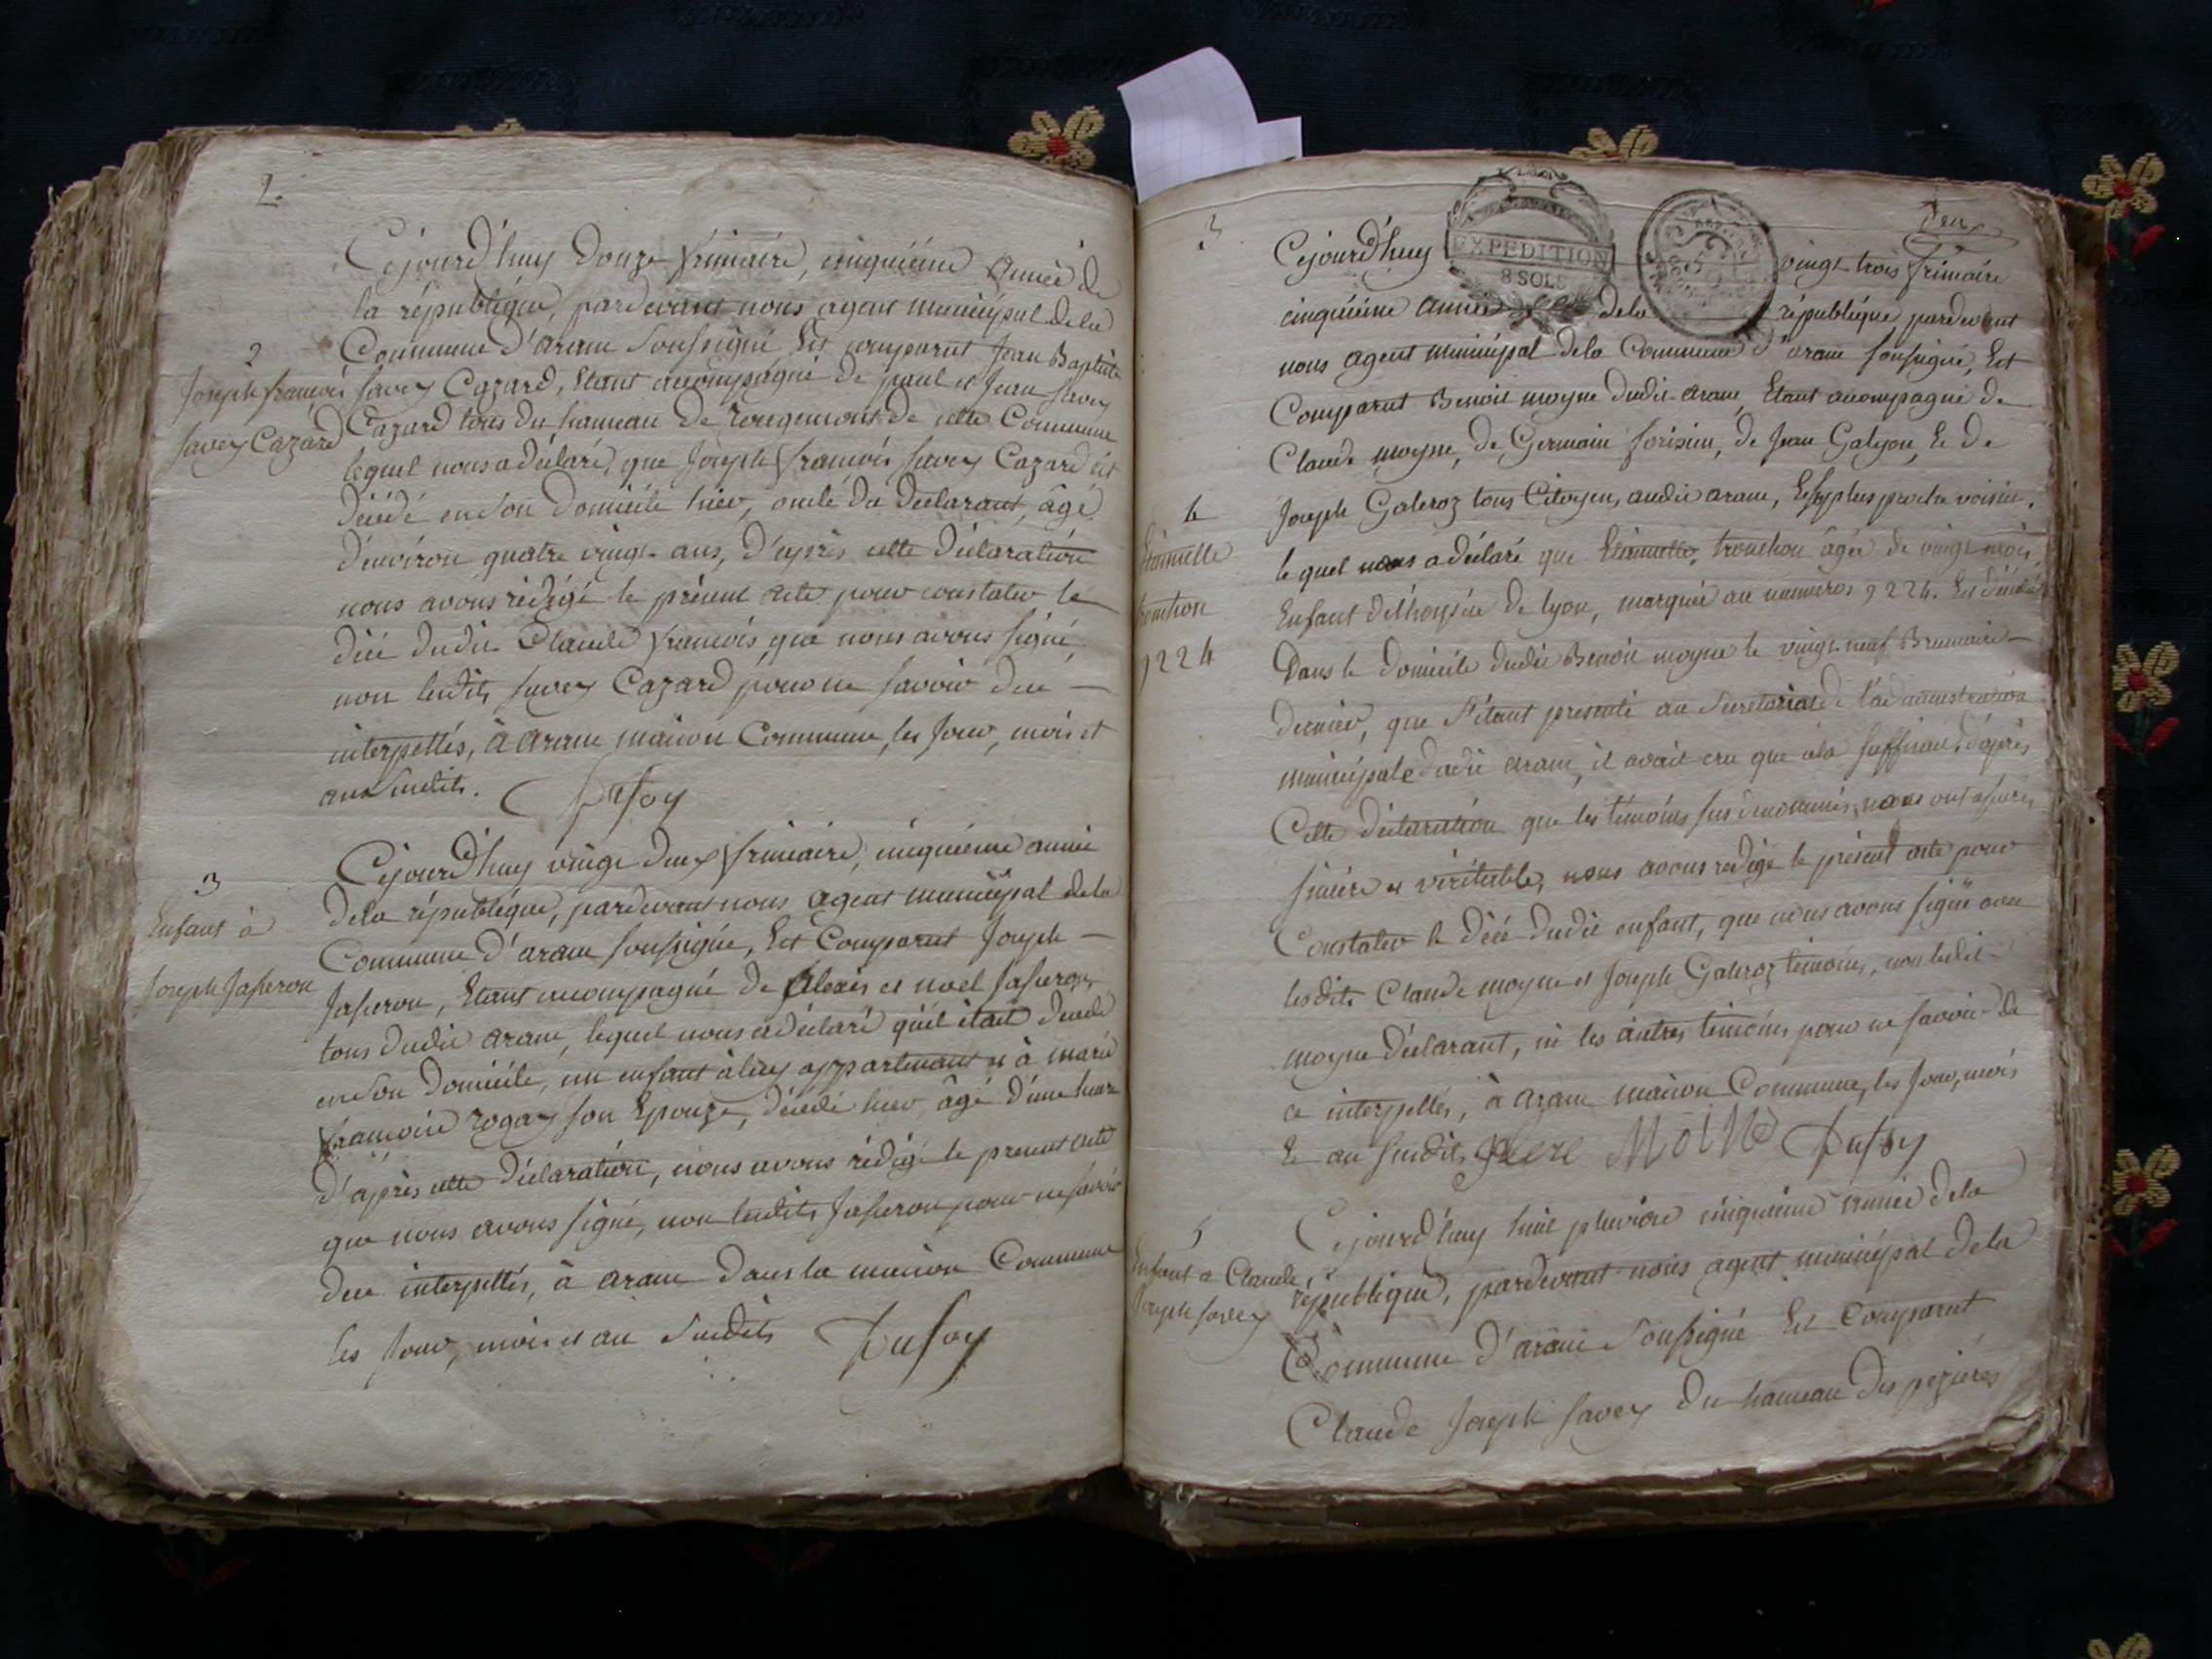 2.
Cejourd'huy Douze frimaire, cinquième année de
la république, pardevant nous agent municipal dela
Commune d'aranc soussigné Est comparut Jean Baptiste
2
Joseph françois
savey Cazard
savey Cazard, Etant accompagné de paul et Jean savey
Cazard tous du hameau de rougemont de cette Commune
lequel nous a déclaré, que Joseph françois savey Cazard est
décédé en son Domicile hier, oncle du Déclarant, âgé
d'environ quatre vingt ans, D'après cette Déclaration
nous avons rédigé le présent acte pour constater le
décé dudit Claude françois que nous avons signé,
non lesdits savey Cazard pour ne savoir de ce
interpellés, à Aranc maison Commune, les Jour, mois et
an susdits.
3
Enfant à
Joseph Jasseron
Cejourd'huy vingt deux frimaire, cinquième année
dela république, pardevant nous agent municipal dela
Commune d'aranc soussigné, Est Comparut Joseph
Jasseron, Etant accompagné de Alexis et noel Jasseron
tous dudit aranc, lequel nous a déclaré qu'il était décédé
en son Domicile, un enfant à luy appartenant et à marie
françoise rogay son Epouze, décédé hier, âgé d'une heure
d'après cette Déclaration, nous avons rédigé le présent acte
que nous avons signé, non lesdits Jasseron pour ne savoir
de ce interpellés, à aranc dans la maison Commune
les Jour, mois et an susdits
3
EXPEDITION
8 SOLS
Deux
Cejourd'huy vingt trois frimaire
cinquième année dela république pardevant
nous agent municipal dela Commune d'aranc soussigné, Est
Comparut Benoit moyne dudit aranc, Etant accompagné de
Claude moyne, de Germain sorisin, de Jean Galyon, Et de
Joseph Galeroz tous Citoyens audit aranc, les plus proche voisins,
tronchon
9224
lequel nous a déclaré que tronchon âgée de vingt mois
Enfant de l'hospice de lyon, marquée au numeros 9224. Est décédée
Dans le domicile dudit Benoit moyne le vingt neuf Brumaire
dernier, que s'étant presenté au Secretariat de l'administration
municipale dudit aranc, il avait cru que cela suffisait, d'après
Cette déclaration que les témoins sus dénommés nous ont assurés
sincère et véritable, nous avons redigé le présent acte pour
Constater le décé dudit enfant, que nous avons signé avec
lesdits Claude moyne et Joseph Galeroz temoins, non ledit
moyne déclarant, ni les autres temoins pour ne savoir de
ce interpellés, à aranc maison Commune, les Jour, mois
Et an susdits MOINE
5
Enfant a Claude
Joseph savey
Cejourd'huy huit pluviose cinquieme année dela
république, pardevant nous agent municipal dela
Commune d'aranc soussigné Est Comparut
Claude Joseph savey du hameau des pezieres